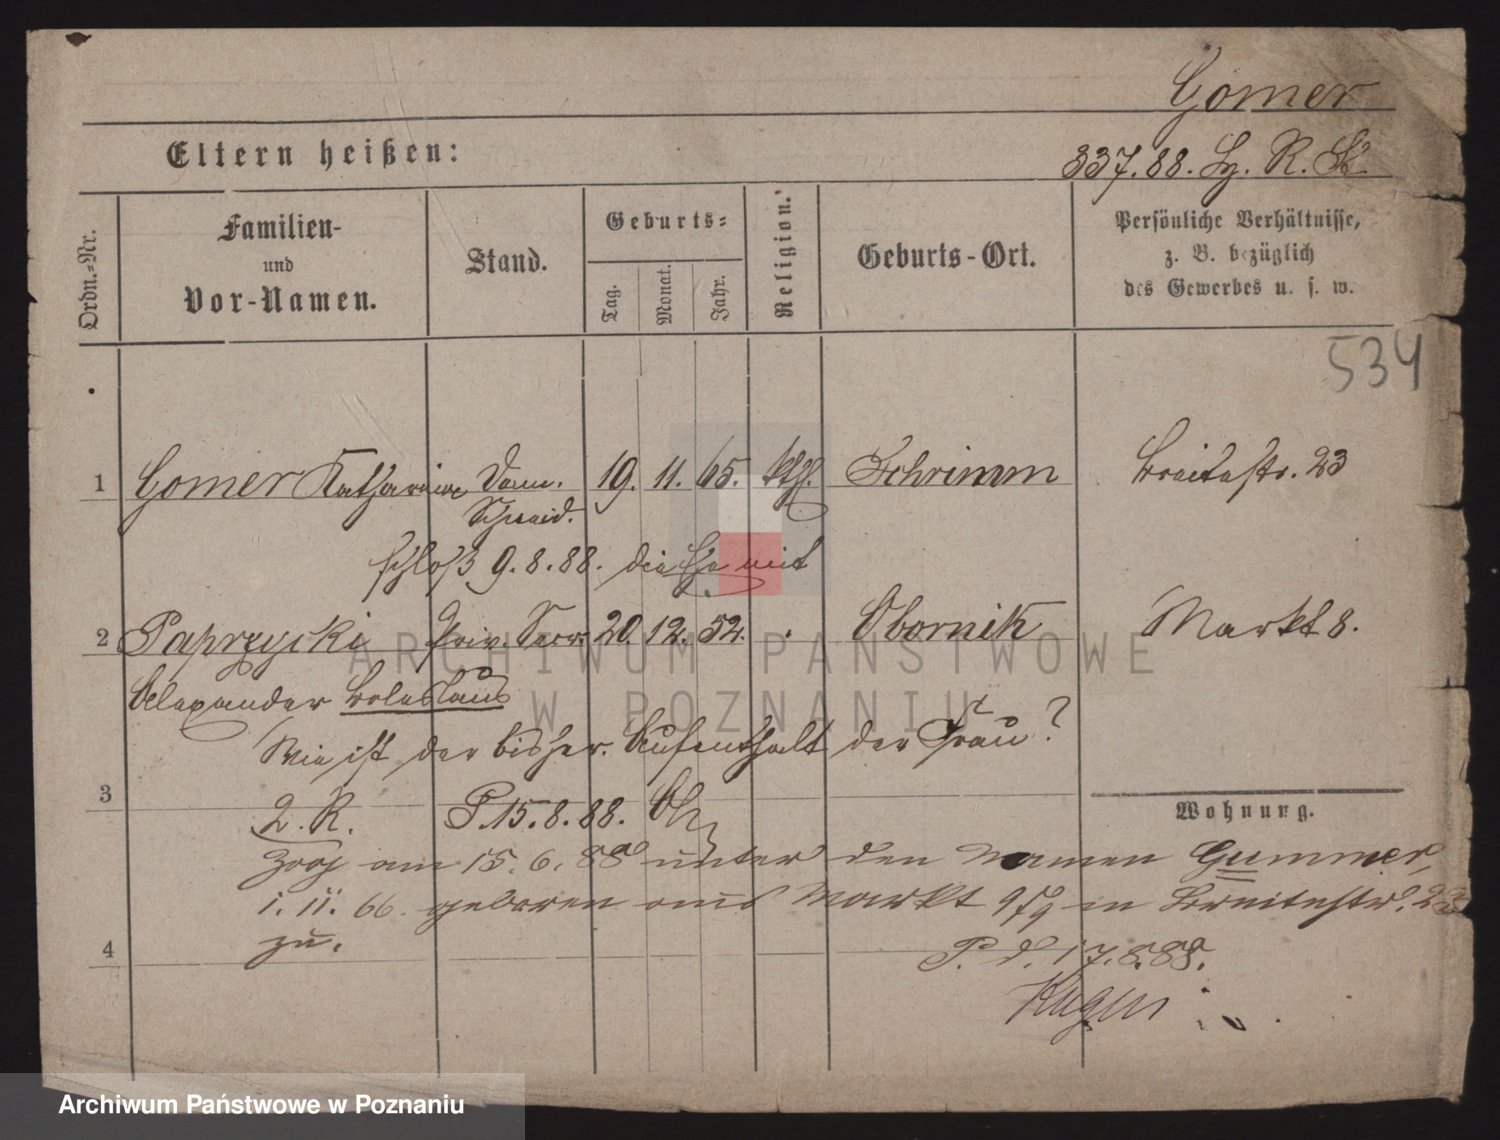 Gomer
Eltern heißen:
337.88. Ey. R. St.
Ordn.-Nr.
Familien-
und
Vor-Namen.
Stand.
Geburts-
Tag.
Monat.
Jahr.
Religion.
Geburts-Ort.
Persönliche Verhältnisse,
z. B. bezüglich
des Gewerbes u. s. w.
534
1 Gomer Katharina Dam. 19. 11. 65. kth. Schrimm Breitestr. 23
Schneid.
schloß 9.8.88. die Ehe mit
2 Paprzycki Priv. Secr. 20. 12. 52. Obornik Markt 8.
Alexander Boleslaus
Wie ist der bisher. Aufenthalt der Frau?
3
2. R. P. 15.8.88.
Wohnung.
Zog am 15.6.88 unter den Namen Gummer,
1.11.66. geboren aus Markt 9 in Breitestr. 23
zu.
4
P. d. 17.8.88.
ARCHIWUM PAŃSTWOWE
W POZNANIU
Archiwum Państwowe w Poznaniu